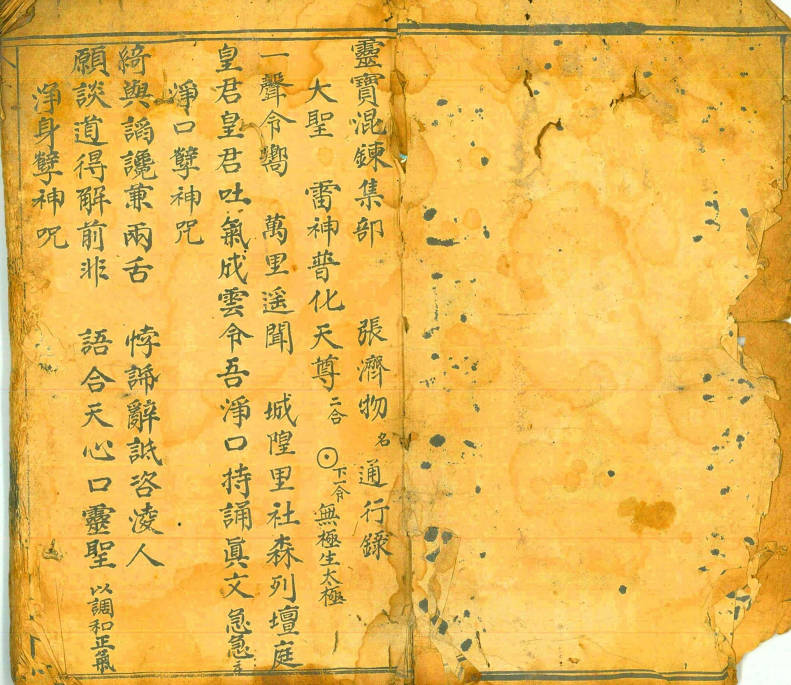 靈寶混鍊集部 張濟物名 通行錄
大聖 雷神普化天尊二合 下一令 無極生太極
一聲令嚮 萬里遥聞 城隍里社森列壇庭
皇君皇君吐氣成雲令吾淨口持誦眞文急急
淨口孽神咒
綺與謟讒兼兩舌 悖 辭 咨凌人
願談道得解前非 語合天心口靈聖以調和正氣
淨身孽神呪